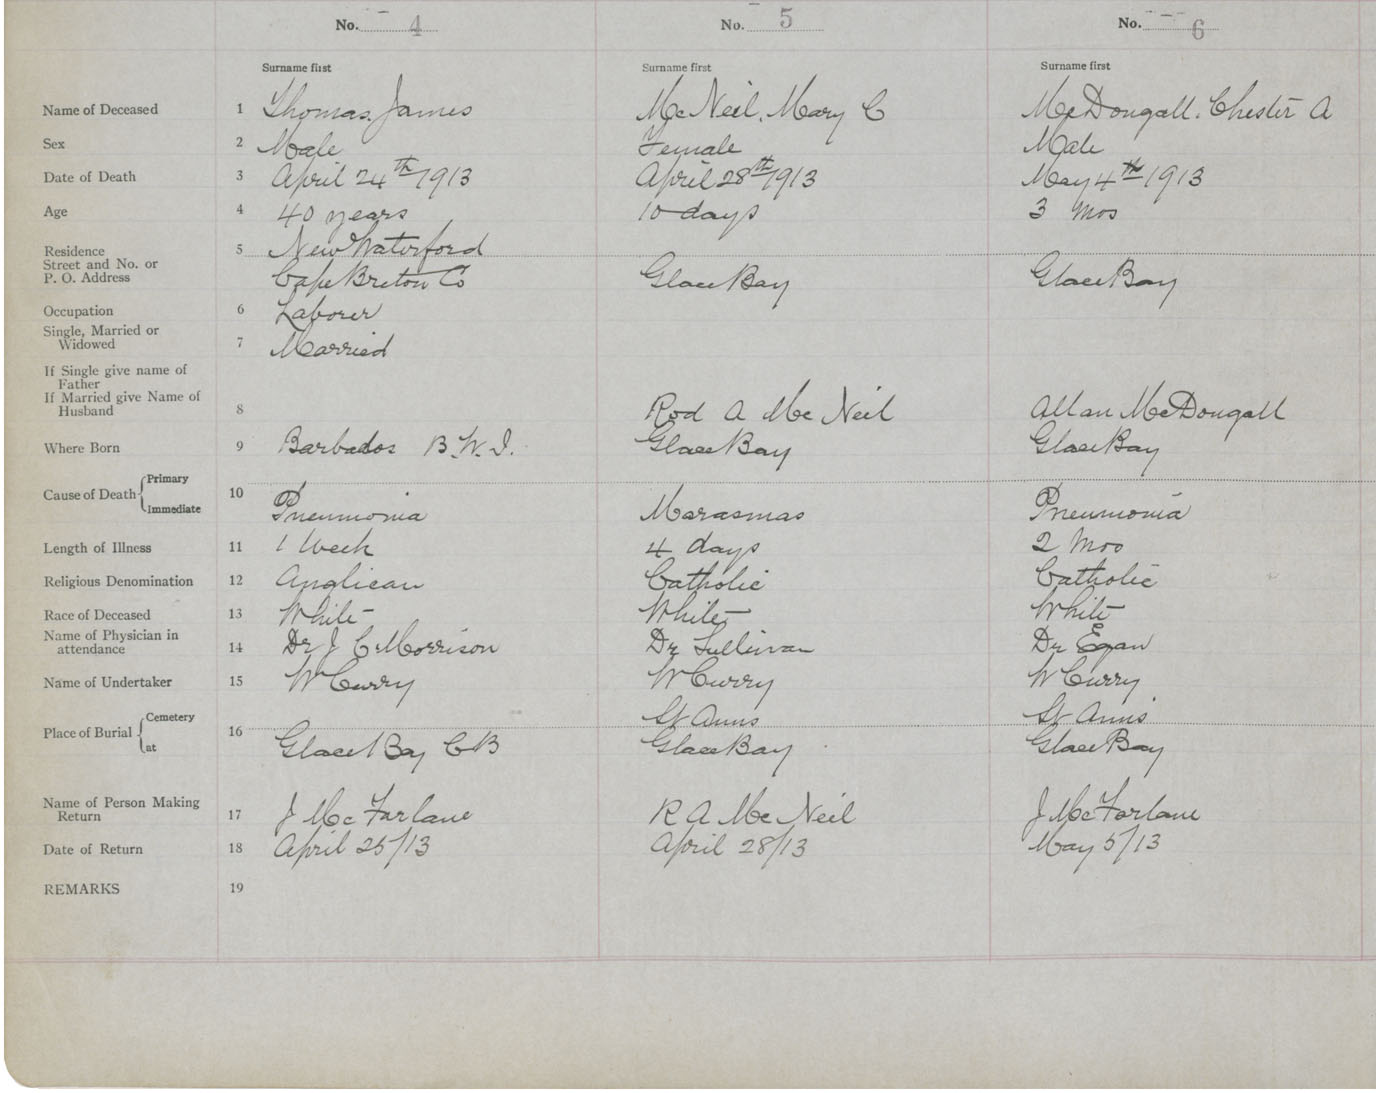 No. 4 No. 5 No. 6
Surname first Surname first Surname first
Name of Deceased 1 Thomas, James McNeil, Mary C McDougall, Chester A
Sex 2 Male Female Male
Date of Death 3 April 24th 1913 April 28th 1913 May 4th 1913
Age 4 40 years 10 days 3 Mos
Residence 5 New Waterford
Street and No. or
P. O. Address Cape Breton Co Glace Bay Glace Bay
Occupation 6 Laborer
Single, Married or
Widowed 7 Married
If Single give name of
Father
If Married give Name of
Husband 8 Rod A McNeil Allan McDougall
Where Born 9 Barbados B.W.I. Glace Bay Glace Bay
Primary
Cause of Death 10
Immediate Pneumonia Marasmas Pneumonia
Length of Illness 11 1 Week 4 days 2 Mos
Religious Denomination 12 Anglican Catholic Catholic
Race of Deceased 13 White White White
Name of Physician in
attendance 14 Dr J C Morrison Dr Sullivan Dr Egan
Name of Undertaker 15 W Curry W Curry W Curry
Cemetery St Anns St Anns
Place of Burial 16
at Glace Bay C B Glace Bay Glace Bay
Name of Person Making
Return 17 J McFarlane R A McNeil J McFarlane
Date of Return 18 April 25/13 April 28/13 May 5/13
REMARKS 19